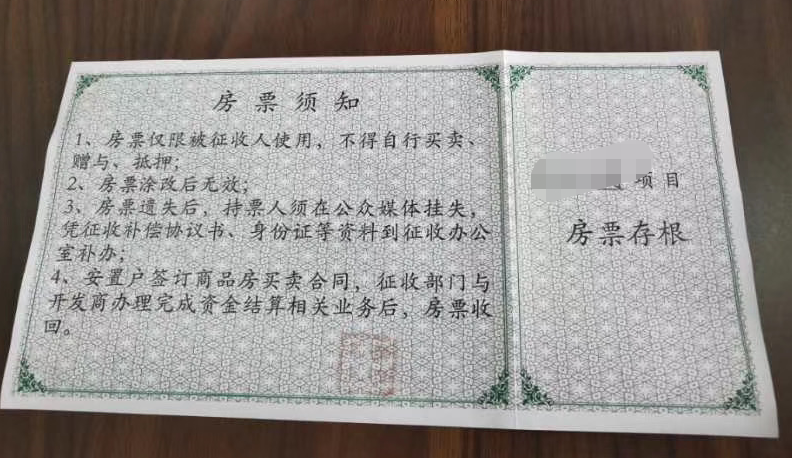 房票须知
1、房票仅限被征收人使用，不得自行买卖、
赠与、抵押；
2、房票涂改后无效；
3、房票遗失后，持票人须在公众媒体挂失，
凭征收补偿协议书、身份证等资料到征收办公
室补办；
4、安置户签订商品房买卖合同，征收部门与
开发商办理完成资金结算相关业务后，房票收
回。
项目
房票存根